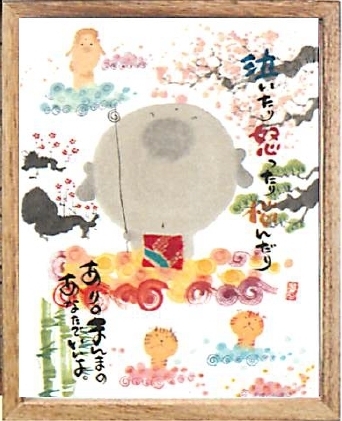 泣いたり怒ったり悩んだり
ありのまんまの
あなたでいいよ。